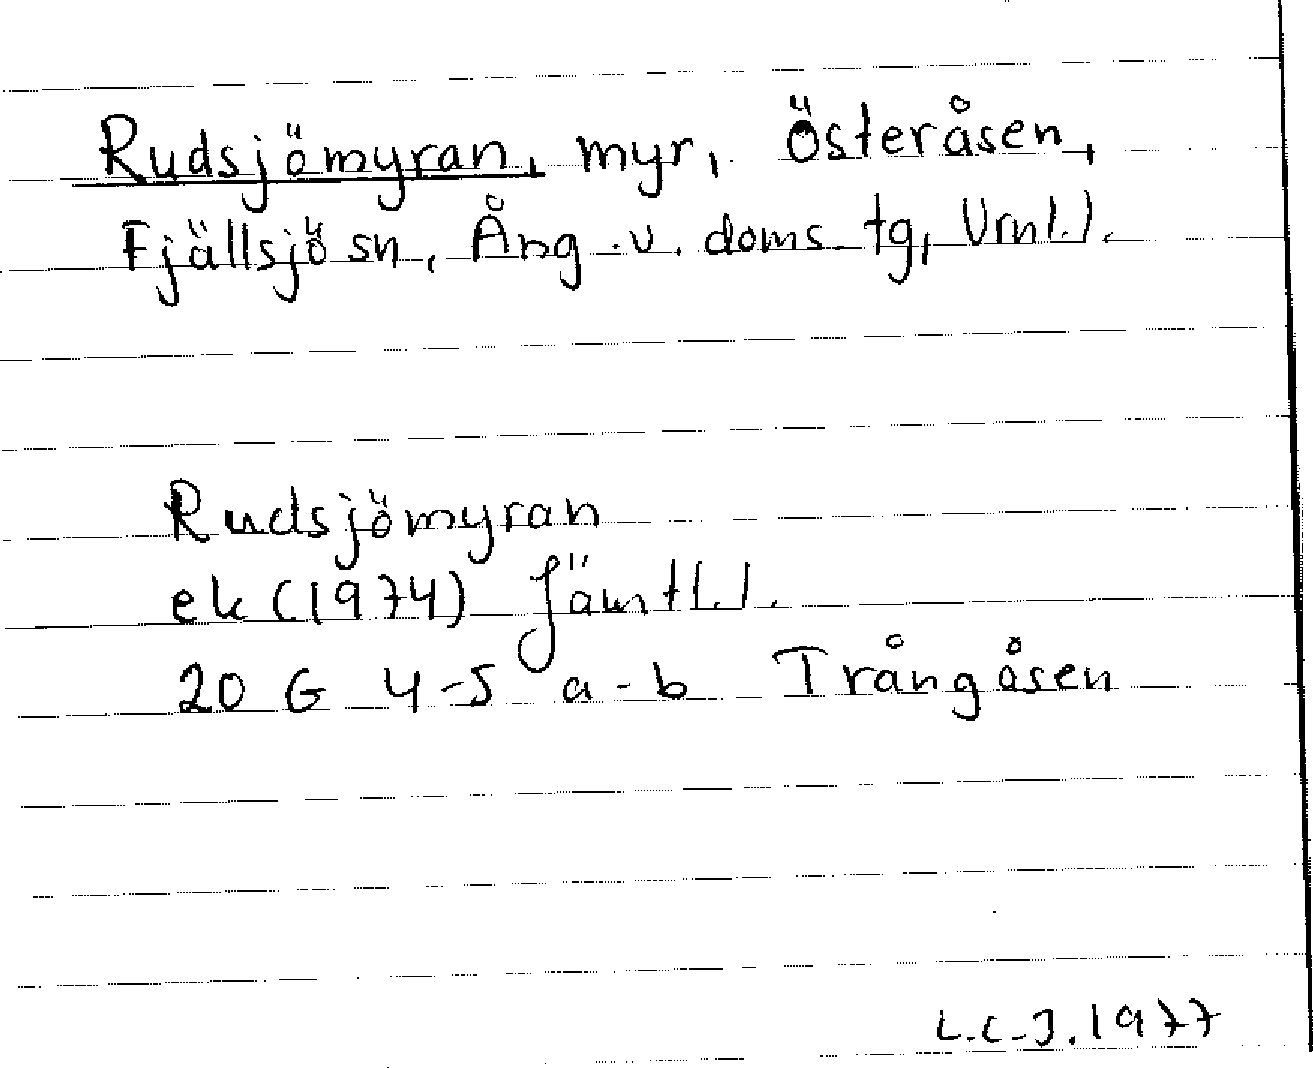 Rudsjömyran, myr, Österåsen,
Fjällsjö sn, Ång. v. doms tg, Vrnl.l.
Rudsjömyran
ek (1974) Jämtl.l.
20 G 4-5 a-b Trångåsen
L.C-J. 1977